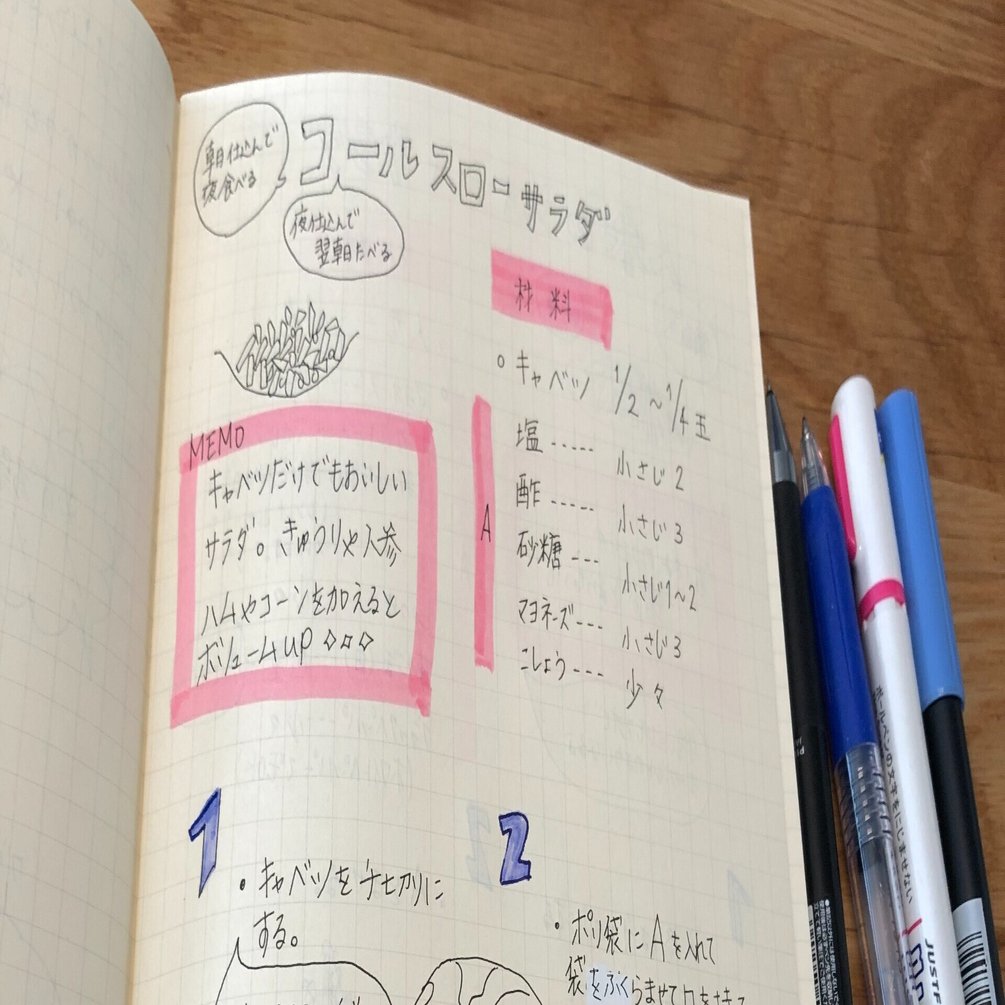 朝仕込んで
夜食べる
コールスローサラダ
夜仕込んで
翌朝たべる
材料
キャベツ 1/2～1/4玉
A
塩 ----- 小さじ2
酢 ----- 小さじ3
砂糖 --- 小さじ1～2
マヨネーズ --- 小さじ3
こしょう --- 少々
MEMO
キャベツだけでもおいしい
サラダ。きゅうりや人参
ハムやコーンを加えると
ボリュームup ◇◇◇
1
・キャベツを千切りに
する。
2
・ポリ袋にAを入れて
袋をふくらませて口を
ボールペンの文字をにじませない
JUST